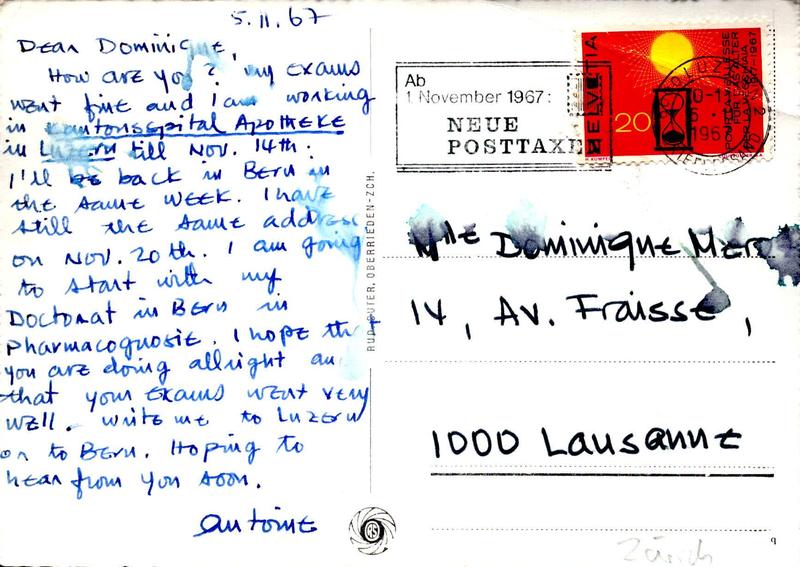 5.11.67
Dear Dominique,
How are you? my exams
went fine and I am working
in Kantonsspital Apotheke
in Luzern till Nov. 14th.
I'll be back in Bern in
the same week. I have
still the same address
on Nov. 20th. I am going
to start with my
Doctorat in Bern in
Pharmacognosie. I hope
you are doing allright
that your exams went very
well. write me to Luzern
or to Bern. Hoping to
hear from you soon.
Antoine
RUD. SUTER, OBERRIEDEN-ZCH.
Ab
1 November 1967:
NEUE
POSTTAXEN
HELVETIA
20
POUR LA VIEILLESSE
FÜR DAS ALTER
1967
Mlle Dominique
14, Av. Fraisse,
1000 Lausanne
RS
9
Zürich